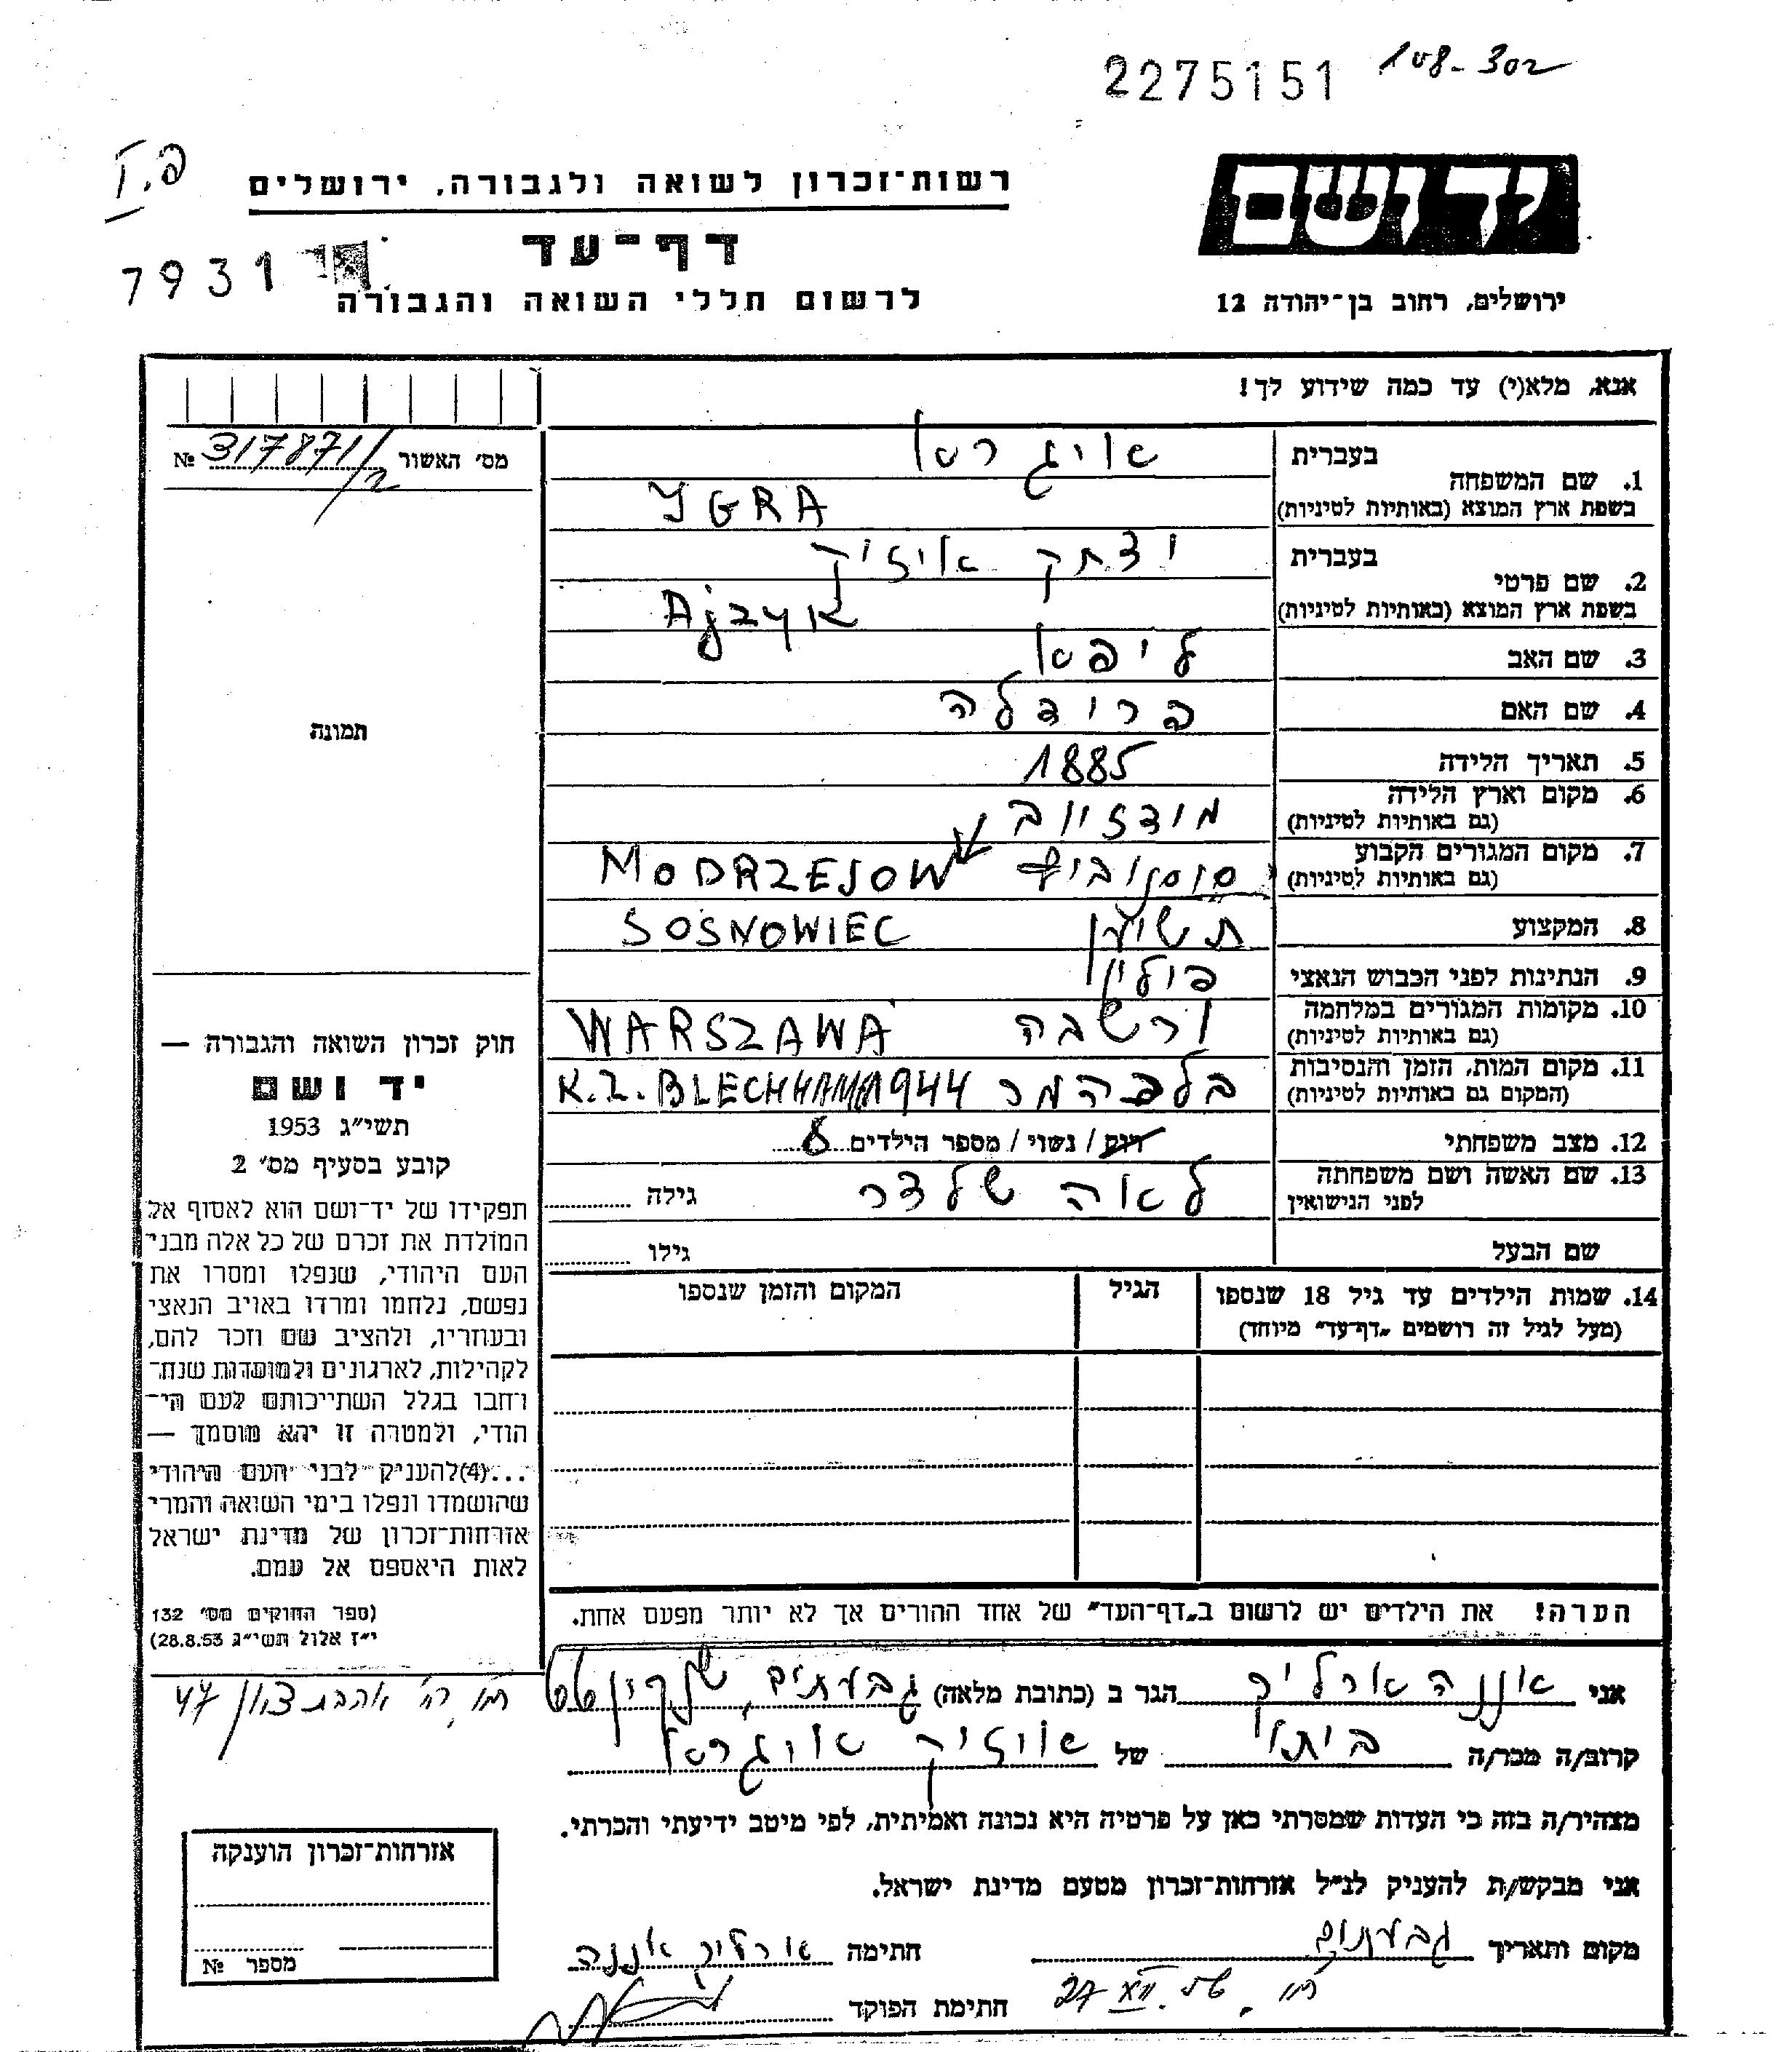 2275151 108-302
פ.I
רשות-זכרון לשואה ולגבורה, ירושלים
יד ושם
דף-עד
7931
לרשום חללי השואה והגבורה
ירושלים, רחוב בן-יהודה 12
אנא, מלא(י) עד כמה שידוע לך!
מס' האשור № 317871/2
תמונה
1. שם המשפחה
בעברית
איגרא
בשפת ארץ המוצא (באותיות לטיניות)
YGRA
2. שם פרטי
בעברית
יצחק אייזיק
בשפת ארץ המוצא (באותיות לטיניות)
Ajzyk
3. שם האב ליפא
4. שם האם פריידלה
5. תאריך הלידה 1885
6. מקום וארץ הלידה
(גם באותיות לטיניות)
7. מקום המגורים הקבוע סוסנוביץ MODRZEJOW
(גם באותיות לטיניות)
8. המקצוע SOSNOWIEC
9. הנתינות לפני הכבוש הנאצי פולין
10. מקומות המגורים במלחמה ורשבה WARSZAWA
(גם באותיות לטיניות)
11. מקום המות, הזמן והנסיבות בלכהמר 1944 K.Z. BLECHHAMMA
(המקום גם באותיות לטיניות)
12. מצב משפחתי רווק / נשוי / מספר הילדים 8
13. שם האשה ושם משפחתה לאה שלדר גילה
לפני הנישואין
שם הבעל גילו
14. שמות הילדים עד גיל 18 שנספו הגיל המקום והזמן שנספו
(מעל לגיל זה רושמים „דף-עד" מיוחד)
הערה! את הילדים יש לרשום ב„דף-העד" של אחד ההורים אך לא יותר מפעם אחת.
חוק זכרון השואה והגבורה —
יד ושם
תשי"ג 1953
קובע בסעיף מס' 2
תפקידו של יד-ושם הוא לאסוף אל
המולדת את זכרם של כל אלה מבני
העם היהודי, שנפלו ומסרו את
נפשם, נלחמו ומרדו באויב הנאצי
ובעוזריו, ולהציב שם וזכר להם,
לקהילות, לארגונים ולמוסדות שנח־
רחבו בגלל השתייכותם לעם הי־
הודי, ולמטרה זו יהא מוסמך —
...(4) להעניק לבני העם היהודי
שהושמדו ונפלו בימי השואה והמרי
אזרחות-זכרון של מדינת ישראל
לאות היאספם אל עמם.
(ספר החוקים מס' 132
י"ז אלול תשי"ג 28.8.53)
אני אננה ארליך הגר ב (כתובת מלאה) גבעתיים, שנקין 66
אהבת ציון 47
קרוב/ה מכר/ה ביתו של אייזיק איגרא
מצהיר/ה בזה כי העדות שמסרתי כאן על פרטיה היא נכונה ואמיתית, לפי מיטב ידיעתי והכרתי.
אני מבקש/ת להעניק לנ"ל אזרחות-זכרון מטעם מדינת ישראל.
מקום ותאריך גבעתיים חתימה ארליך אננה
27 XII
חתימת הפוקד
אזרחות-זכרון הוענקה
מספר №